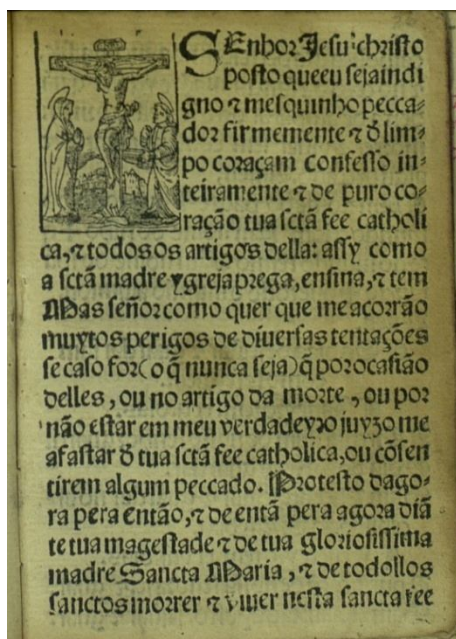 SEnhor Jesu christo
posto que eu seja indi
gno ⁊ mesquinho pecca⸗
dor firmemente ⁊ õ lim⸗
po coraçam confesso in⸗
teiramente ⁊ de puro co⸗
ração tua sctã fee catholi
ca, ⁊ todos os artigos della: assy como
a sctã madre ygreja prega, ensina, ⁊ tem
Mas señor como quer que me acorrão
muytos perigos de diversas tentações
se caso for (o q̃ nunca seja) q̃ por ocasião
delles, ou no artigo da morte, ou por
não estar em meu verdadeyro juyzo me
afastar õ tua sctã fee catholica, ou cõsen
tir em algum peccado. Protesto dago⸗
ra pera então, ⁊ de entã pera agora diã
te tua magestade ⁊ de tua gloriosissima
madre Sancta Maria, ⁊ de todollos
sanctos morrer ⁊ viver nesta sancta fee